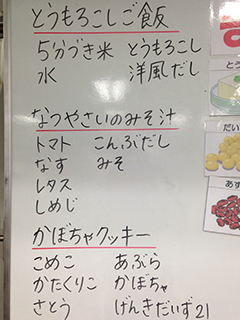 とうもろこしご飯
5分づき米 とうもろこし
水 洋風だし
なつやさいのみそ汁
トマト こんぶだし
なす みそ
レタス
しめじ
かぼちゃクッキー
こめこ あぶら
かたくりこ かぼちゃ
さとう げんきだいず21
とう
だい
あず